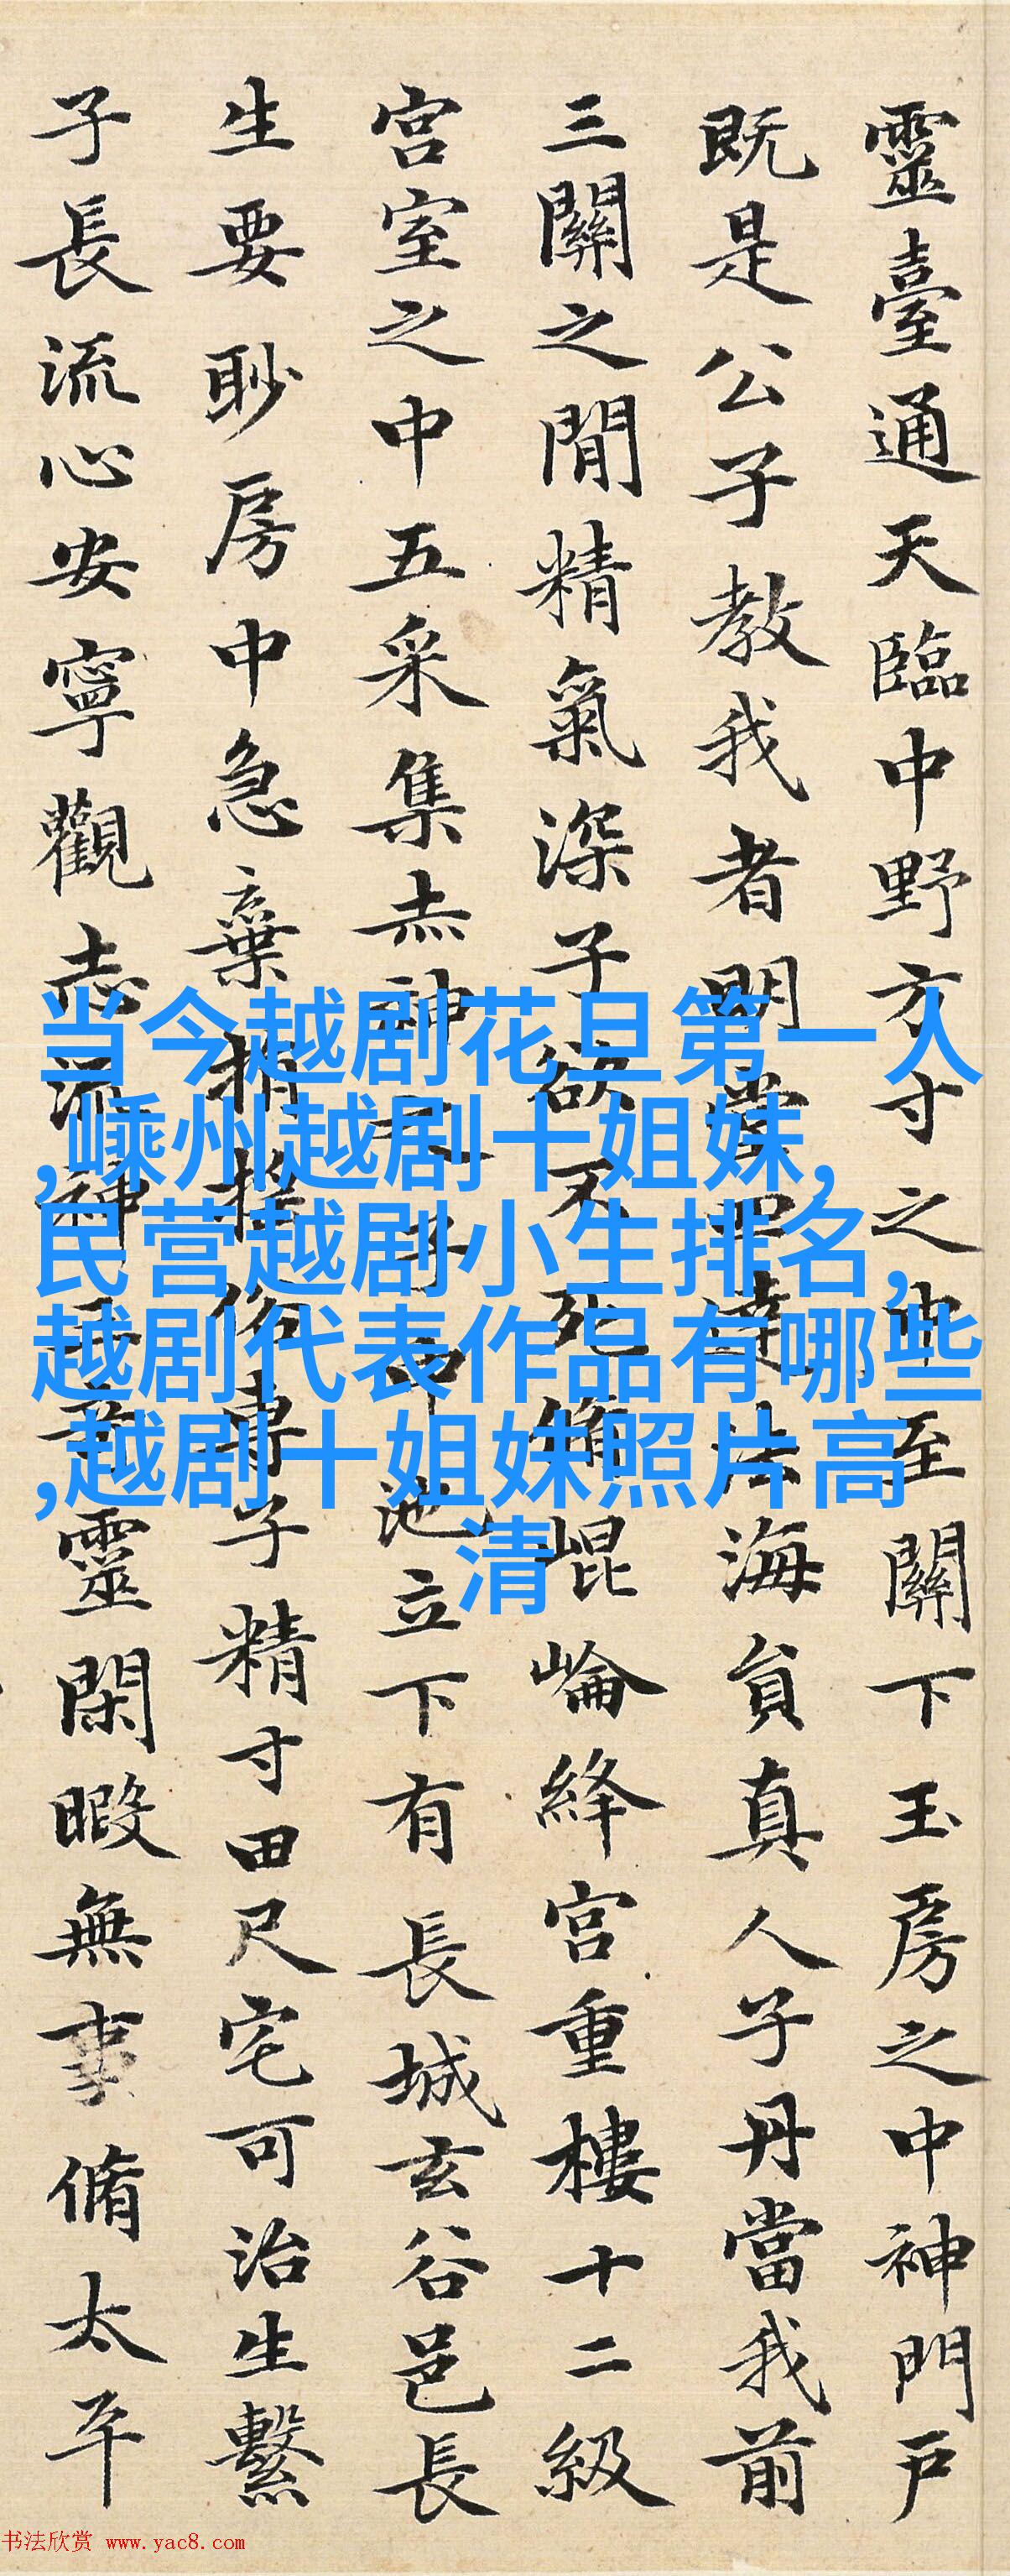 靈臺通天臨中野方寸之中至關下玉房之中神門戶
既是公子教我者明堂四達法海員真人子丹當我前
三關之閒精氣深子欲不死脩崐崘絳宮重樓十二級
宮室之中五采集赤神之子中池立下有長城玄谷邑長
生要眇房中急棄捐搖俗專子精寸田尺宅可治生繫
子長流心安寧觀志流神三奇靈閑暇無事脩太平
当今越剧花旦第一人
,嵊州越剧十姐妹,
民营越剧小生排名,
越剧代表作品有哪些
,越剧十姐妹照片高
清
书法欣赏 www.yac8.com